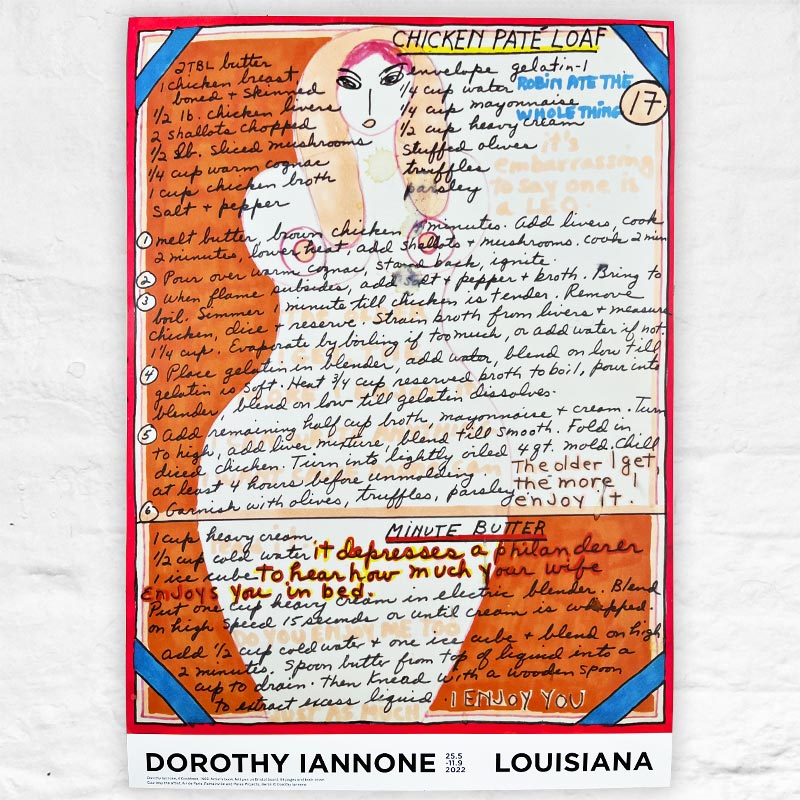 CHICKEN PATÉ LOAF
2 TBL butter
1 chicken breast
boned + skinned
1/2 lb. chicken livers
2 shallots chopped
1/2 lb. sliced mushrooms
1/4 cup warm cognac
1 cup chicken broth
salt + pepper
envelope gelatin-1
1/4 cup water
1/4 cup mayonnaise
1/2 cup heavy cream
stuffed olives
truffles
parsley
ROBIN ATE THE
WHOLE THING
17
it's
embarrassing
to say one is
a LEO.
1 melt butter brown chicken minutes. Add livers, cook
2 minutes, lower heat, add shallots + mushrooms. cook 2 min
2 Pour over warm cognac, stand back, ignite.
3 When flame subsides, add salt + pepper + broth. Bring to
boil. Simmer minute till chicken is tender. Remove
chicken, dice + reserve. Strain broth from livers + measure
1 1/4 cup. Evaporate by boiling if too much, or add water if not.
4 Place gelatin in blender, add water, blend on low till
gelatin is soft. Heat 3/4 cup reserved broth to boil, pour into
blender, blend on low till gelatin dissolves.
5 Add remaining half cup broth, mayonnaise + cream. Turn
to high, add liver mixture, blend till smooth. Fold in
diced chicken. Turn into lightly oiled 4 qt. mold. Chill
at least 4 hours before unmolding
6 Garnish with olives, truffles, parsley
The older I get,
the more I
enjoy it.
MINUTE BUTTER
1 cup heavy cream
1/2 cup cold water
1 ice cube
it depresses a philanderer
to hear how much your wife
ENJOYS you in bed.
Put one cup heavy cream in electric blender. Blend
on high speed 15 seconds or until cream is whipped.
DO YOU ENJOY ME TOO
Add 1/2 cup cold water + one ice cube + blend on high
2 minutes. Spoon butter from top of liquid into a
cup to drain. Then Knead with a wooden spoon
to extract excess liquid.
I ENJOY YOU
JUST AS MUCH
DOROTHY IANNONE
25.5
-11.9
2022
LOUISIANA